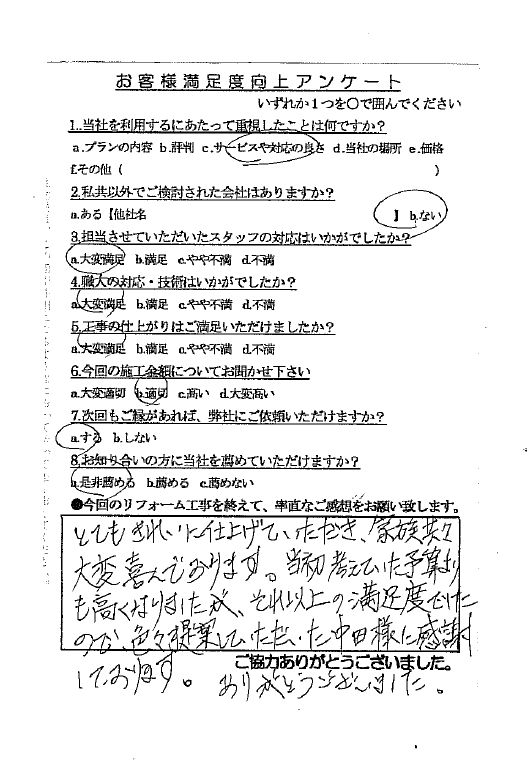 お客様満足度向上アンケート
いずれか1つを○で囲んでください
1..当社を利用するにあたって重視したことは何ですか?
a.プランの内容 b.評判 c.サービスや対応の良さ d.当社の場所 e.価格
f.その他 ( )
2.私共以外でご検討された会社はありますか?
a.ある【他社名 】 b.ない
3.担当させていただいたスタッフの対応はいかがでしたか?
a.大変満足 b.満足 c.やや不満 d.不満
4.職人の対応・技術はいかがでしたか?
a.大変満足 b.満足 c.やや不満 d.不満
5.工事の仕上がりはご満足いただけましたか?
a.大変満足 b.満足 c.やや不満 d.不満
6.今回の施工金額についてお聞かせ下さい
a.大変適切 b.適切 c.高い d.大変高い
7.次回もご縁があれば、弊社にご依頼いただけますか?
a.する b.しない
8.お知り合いの方に当社を薦めていただけますか?
a.是非薦める b.薦める c.薦めない
●今回のリフォーム工事を終えて、率直なご感想をお願い致します。
とてもきれいに仕上げていただき、家族共々
大変喜んでおります。当初考えていた予算より
も高くなりましたが、それ以上の満足度でした
ので、色々提案していただいた中田様に感謝
しております。 ありがとうございました。
ご協力ありがとうございました。